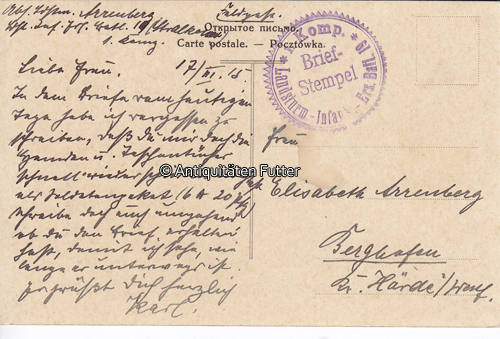 Abs. Ldstm. Arrenberg
Feldpost.
Ldst. Inf. Ers. Batl. 19 (Stralkowo)
1. Komp.
Открытое письмо.
Carte postale. — Pocztówka.
* 1. Komp. * Landsturm - Infant. - Ers. Batl. 19
Brief-
Stempel
17/VI. 15
Liebe Frau.
In dem Briefe vom heutigen
Tage habe ich vergessen zu
schreiben, daß du mir doch die
Hemden u. Taschentücher
schnell wieder
als Soldatenpaket (6 tt 20 Pfg)
schreibe doch auch umgehend
ob du den Brief erhalten
hast, damit ich sehe, wie
lange er unterwegs ist.
Es grüßt Dich herzlich
Karl.
Frau
Elisabeth Arrenberg
Berghofen
Kr. Hörde i/Westf
© Antiquitäten Futter